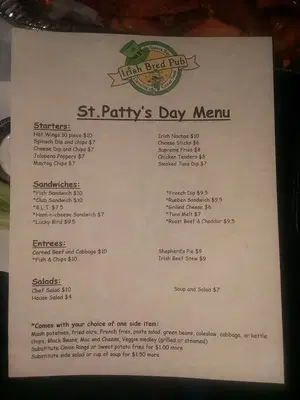 Irish Bred Pub
St.Patty's Day Menu
Starters:
Hot Wings 10 piece $10
Spinach Dip and Chips $7
Cheese Dip and Chips $7
Jalapeno Poppers $7
Maytag Chips $7
Irish Nachos $10
Cheese Sticks $6
Supreme Fries $8
Chicken Tenders $8
Smoked Tuna Dip $7
Sandwiches:
*Fish Sandwich $10
*Club Sandwich $10
*B.L.T $7.5
*Ham-n-cheese Sandwich $7
*Lucky Bird $9.5
*French Dip $9.5
*Rueben Sandwich $9.5
*Grilled Cheese $6
*Tuna Melt $7
*Roast Beef & Cheddar $9.5
Entrees:
Corned Beef and Cabbage $10
*Fish & Chips $10
Shepherd's Pie $9
Irish Beef Stew $9
Salads:
Chef Salad $10
House Salad $4
Soup and Salad $7
*Comes with your choice of one side item:
Mash potatoes, fried corn, French fries, pasta salad, green beans, coleslaw, cabbage, or kettle
chips, Black Beans, Mac and Cheese, Veggie medley (grilled or steamed)
Substitute Onion Rings or Sweet potato fries for $1.00 more
Substitute side salad or cup of soup for $1.50 more